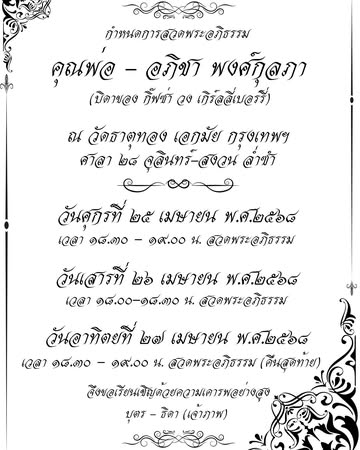 กำหนดการสวดพระอภิธรรม
คุณพ่อ – อภิชา พงศ์กุลภา
(บิดาของ กิ๊ฟซ่า วง เกิร์ลลี่เบอร์รี่)
ณ วัดธาตุทอง เอกมัย กรุงเทพฯ
ศาลา ๒๘ จุลินทร์-สงวน ล่ำซำ
วันศุกร์ที่ ๒๕ เมษายน พ.ศ.๒๕๖๘
เวลา ๑๘.๓๐ – ๑๙.๐๐ น. สวดพระอภิธรรม
วันเสาร์ที่ ๒๖ เมษายน พ.ศ.๒๕๖๘
เวลา ๑๘.๐๐-๑๘.๓๐ น. สวดพระอภิธรรม
วันอาทิตย์ที่ ๒๗ เมษายน พ.ศ.๒๕๖๘
เวลา ๑๘.๓๐ – ๑๙.๐๐ น. สวดพระอภิธรรม (คืนสุดท้าย)
จึงขอเรียนเชิญด้วยความเคารพอย่างสูง
บุตร – ธิดา (เจ้าภาพ)